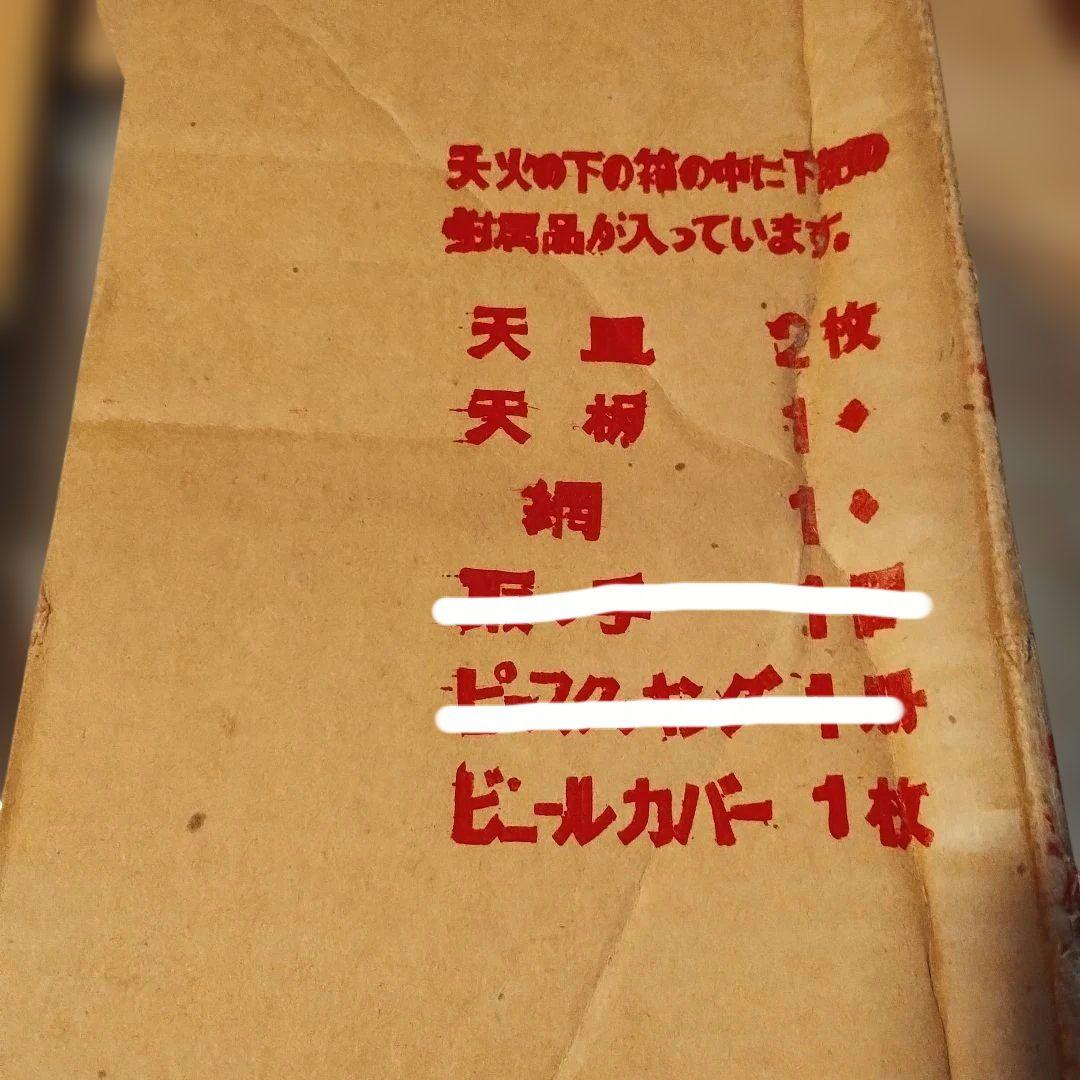 天火の下の箱の中に下記の
附属品が入っています。
天皿 2枚
天柄 1〃
網 1〃
取っ手 1
ピースクッキング 1冊
ビニールカバー 1枚